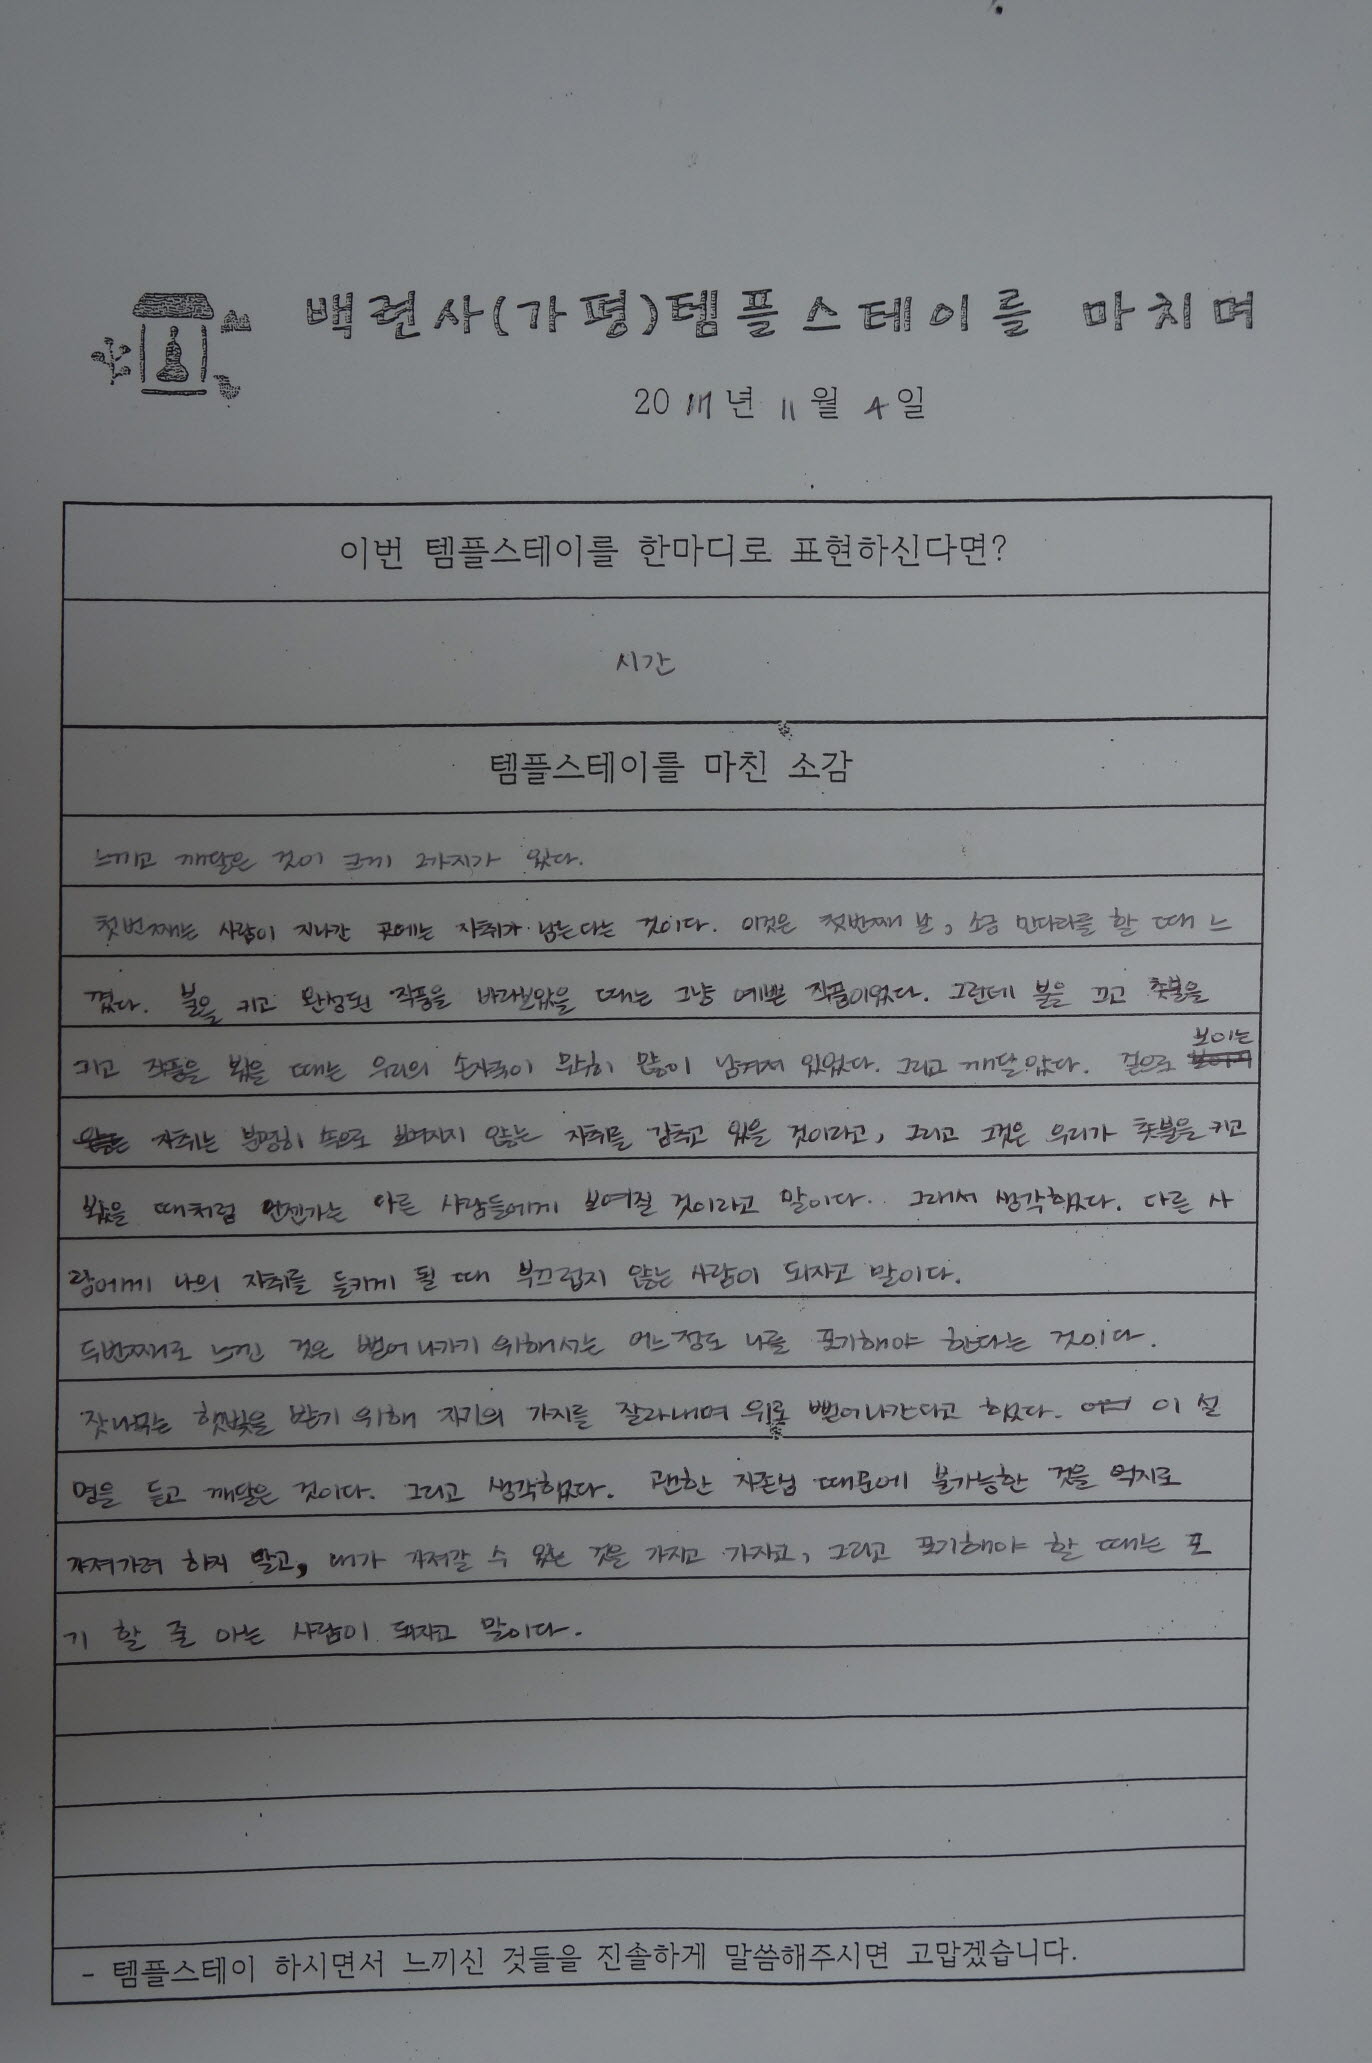 백련사(가평)템플스테이를 마치며
2017년 11월 4일
이번 템플스테이를 한마디로 표현하신다면?
시간
템플스테이를 마친 소감
느끼고 깨달은 것이 크게 2가지가 있다.
첫번째는 사람이 지나간 곳에는 자취가 남는다는 것이다. 이것은 첫번째 날, 소금 만다라를 할 때 느
꼈다. 불을 키고 완성된 작품을 바라보았을 때는 그냥 예쁜 작품이었다. 그런데 불을 끄고 촛불을
키고 작품을 봤을 때는 우리의 손자국이 무수히 많이 남겨져 있었다. 그리고 깨달았다. 겉으로 보이는
자취는 분명히 속으로 보여지지 않는 자취를 감추고 있을 것이라고, 그리고 그것은 우리가 촛불을 키고
봤을 때처럼 언젠가는 다른 사람들에게 보여질 것이라고 말이다. 그래서 생각했다. 다른 사
람에게 나의 자취를 들키게 될 때 부끄럽지 않는 사람이 되자고 말이다.
두번째로 느낀 것은 뻗어나가기 위해서는 어느정도 나를 포기해야 한다는 것이다.
잣나무는 햇빛을 받기 위해 자기의 가지를 잘라내며 위로 뻗어나간다고 했다. 이 설
명을 듣고 깨달은 것이다. 그리고 생각했다. 괜한 자존심 때문에 불가능한 것을 억지로
가져가려 하지 말고, 내가 가져갈 수 있는 것을 가지고 가자고, 그리고 포기해야 할 때는 포
기 할 줄 아는 사람이 되자고 말이다.
- 템플스테이 하시면서 느끼신 것들을 진솔하게 말씀해주시면 고맙겠습니다.